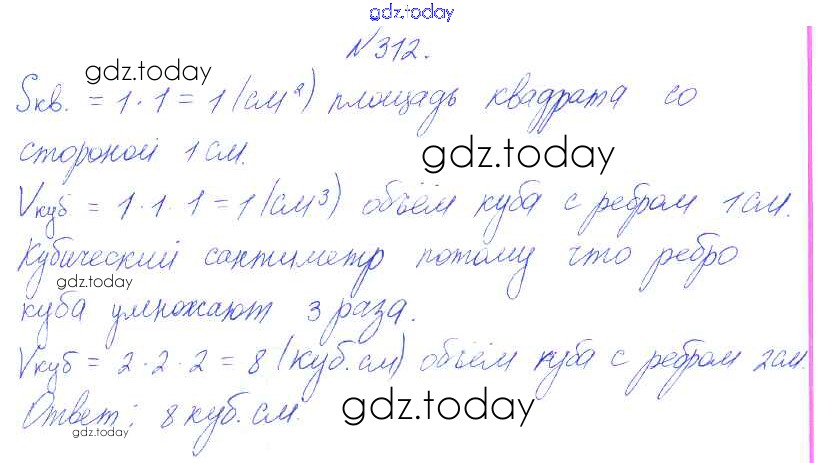 gdz.today
N 312.
gdz.today
Sкв. = 1 · 1 = 1 (см²) площадь квадрата со
стороной 1 см.
gdz.today
Vкуб = 1 · 1 · 1 = 1 (см³) объём куба с ребром 1 см.
Кубический сантиметр потому что ребро
gdz.today
куба умножают 3 раза.
Vкуб = 2 · 2 · 2 = 8 (куб. см) объём куба с ребром 2 см.
Ответ: 8 куб. см.
gdz.today
gdz.today